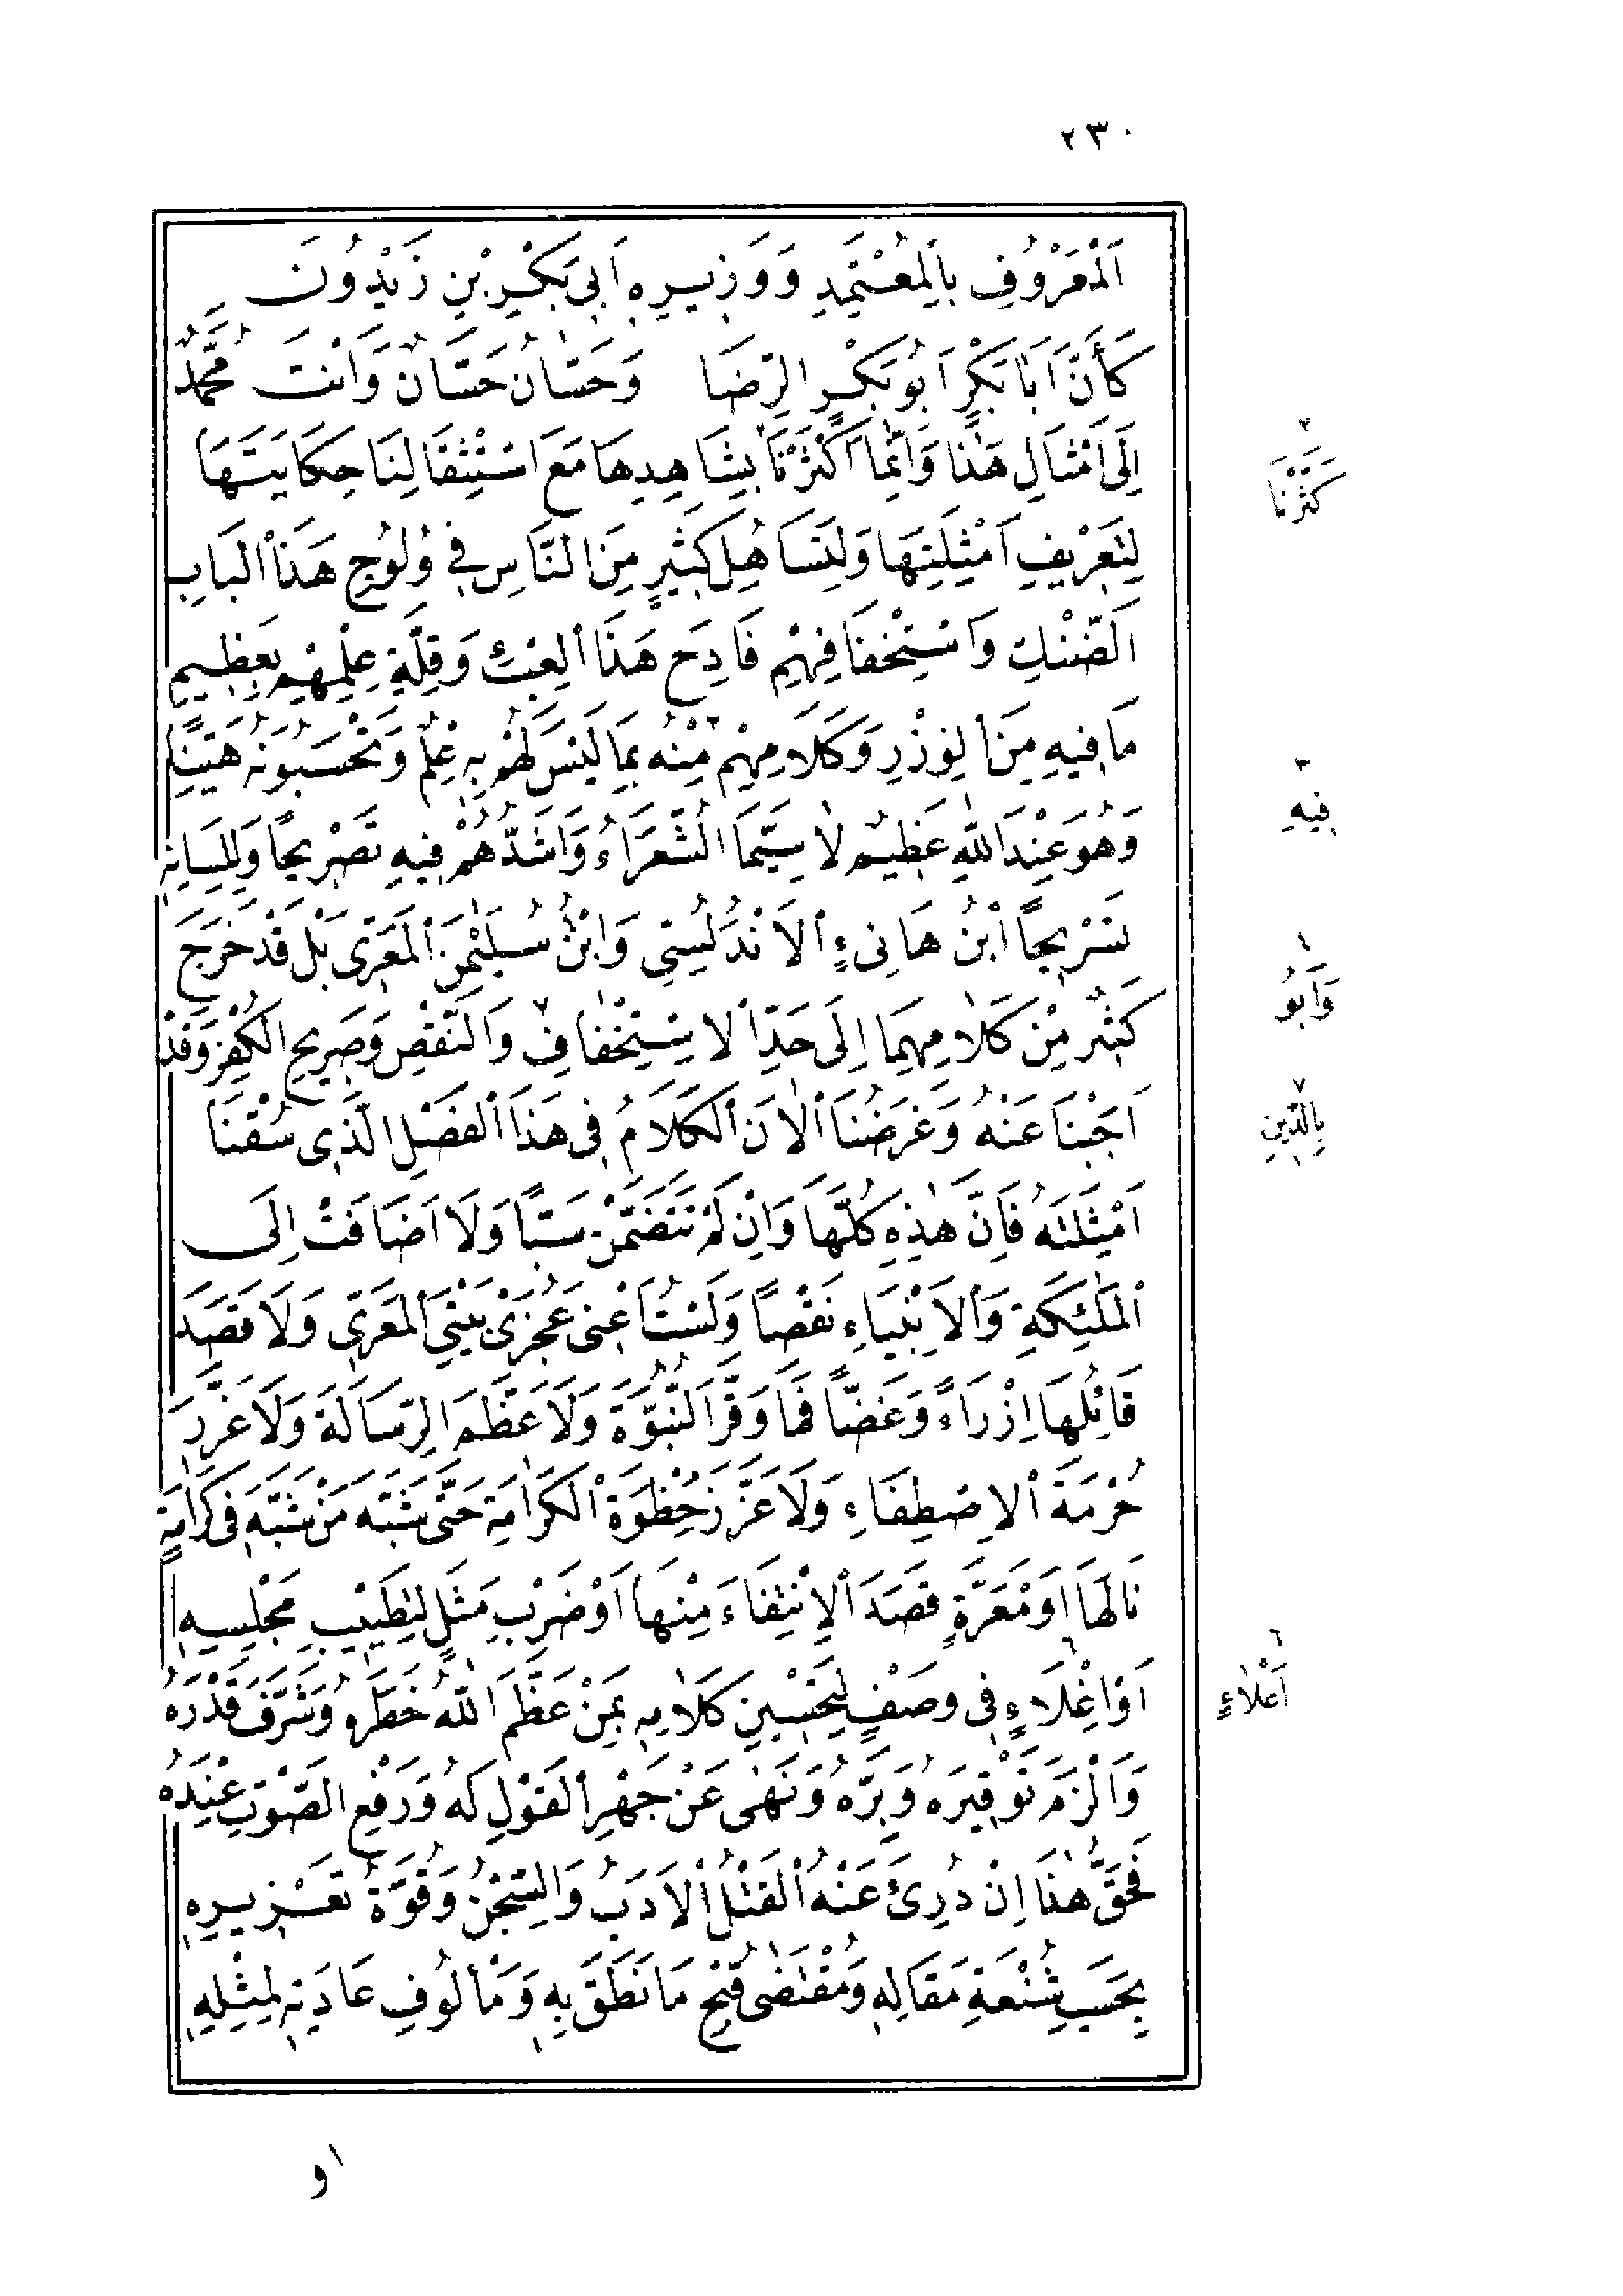 ٢٣٠
اَلْمَعْرُوفِ بِالْمُعْتَمِدِ وَوَزِيرِهِ اَبِى بَكْرِ بْنِ زَيْدُونَ
كَأَنَّ اَبَا بَكْرٍ اَبُو بَكْرِ الرِّضَا وَحَسَّانُ حَسَّانٌ وَاَنْتَ مُحَمَّدُ
اِلَى اَمْثَالِ هٰذَا وَاِنَّمَا اَكْثَرْنَا بِشَاهِدِهَا مَعَ اسْتِثْقَالِنَا حِكَايَتَهَا
كَثَّرْنَا
لِتَعْرِيفِ اَمْثِلَتِهَا وَلِتَسَاهُلِ كَثِيرٍ مِنَ النَّاسِ فِى وُلُوجِ هَذَا الْبَابِ
الضَّنْكِ وَاسْتِخْفَافِهِمْ فَادِحَ هَذَا الْعِبْئِ وَقِلَّةِ عِلْمِهِمْ بِعَظِيمِ
مَا فِيهِ مِنَ الْوِزْرِ وَكَلَامِهِمْ مِنْهُ بِمَا لَيْسَ لَهُمْ بِهِ عِلْمٌ وَتَحْسَبُونَهُ هَيِّنًا
فِيهِ
وَهُوَ عِنْدَ اللهِ عَظِيمٌ لَا سِيَّمَا الشُّعَرَاءُ وَاَشَدُّهُمْ فِيهِ تَصْرِيحًا وَلِلِسَانِهِ
تَسْرِيحًا ابْنُ هَانِىءٍ الْاَنْدَلُسِىِّ وَابْنُ سُلَيْمٰنَ الْمَعَرِّى بَلْ قَدْ خَرَجَ
وَاَبُو
كَثِيرٌ مِنْ كَلَامِهِمَا اِلَى حَدِّ الْاِسْتِخْفَافِ وَالنَّقْصِ وَصَرِيحِ الْكُفْرِ وَقَدْ
اَجَبْنَا عَنْهُ وَغَرَضُنَا الْاٰنَ الْكَلَامُ فِى هَذَا الْفَصْلِ الَّذِى سُقْنَا
بِالدِّينِ
اَمْثِلَتَهُ فَاِنَّ هٰذِهِ كُلَّهَا وَاِنْ لَمْ تَتَضَمَّنْ سَبًّا وَلَا اَضَافَتْ اِلَى
الْمَلٰئِكَةِ وَالْاَنْبِيَاءِ نَقْصًا وَلَسْتُ اَعْنِى عَجُزَىْ بَيْتَىِ الْمَعَرِّى وَلَا قَصَدَ
قَائِلُهَا اِزْرَاءً وَغَضًّا فَمَا وَقَّرَ النُّبُوَّةَ وَلَا عَظَّمَ الرِّسَالَةَ وَلَا غَزَّرَ
حُرْمَةَ الْاِصْطِفَاءِ وَلَا عَزَّزَ حُظْوَةَ الْكَرَامَةِ حَتّٰى شَبَّهَ مَنْ شَبَّهَ فِى كَرَامَةٍ
نَالَهَا اَوْ مَعَرَّةٍ قَصَدَ الْاِنْتِفَاءَ مِنْهَا اَوْ ضَرْبِ مَثَلٍ لِتَطْيِيبِ مَجْلِسِهِ
اَوْ اِغْلَاءٍ فِى وَصْفٍ لِتَحْسِينِ كَلَامِهِ بِمَنْ عَظَّمَ اللهُ خَطَرَهُ وَشَرَّفَ قَدْرَهُ
اَعْلَاءٍ
وَاَلْزَمَ تَوْقِيرَهُ وَبِرَّهُ وَنَهٰى عَنْ جَهْرِ الْقَوْلِ لَهُ وَرَفْعِ الصَّوْتِ عِنْدَهُ
فَحَقُّ هٰذَا اِنْ دُرِئَ عَنْهُ الْقَتْلُ الْاَدَبُ وَالسِّجْنُ وَقُوَّةُ تَعْزِيرِهِ
بِحَسَبِ شُنْعَةِ مَقَالِهِ وَمُقْتَضٰى قُبْحِ مَا نَطَقَ بِهِ وَمَأْلُوفِ عَادَتِهِ لِمِثْلِهِ
او